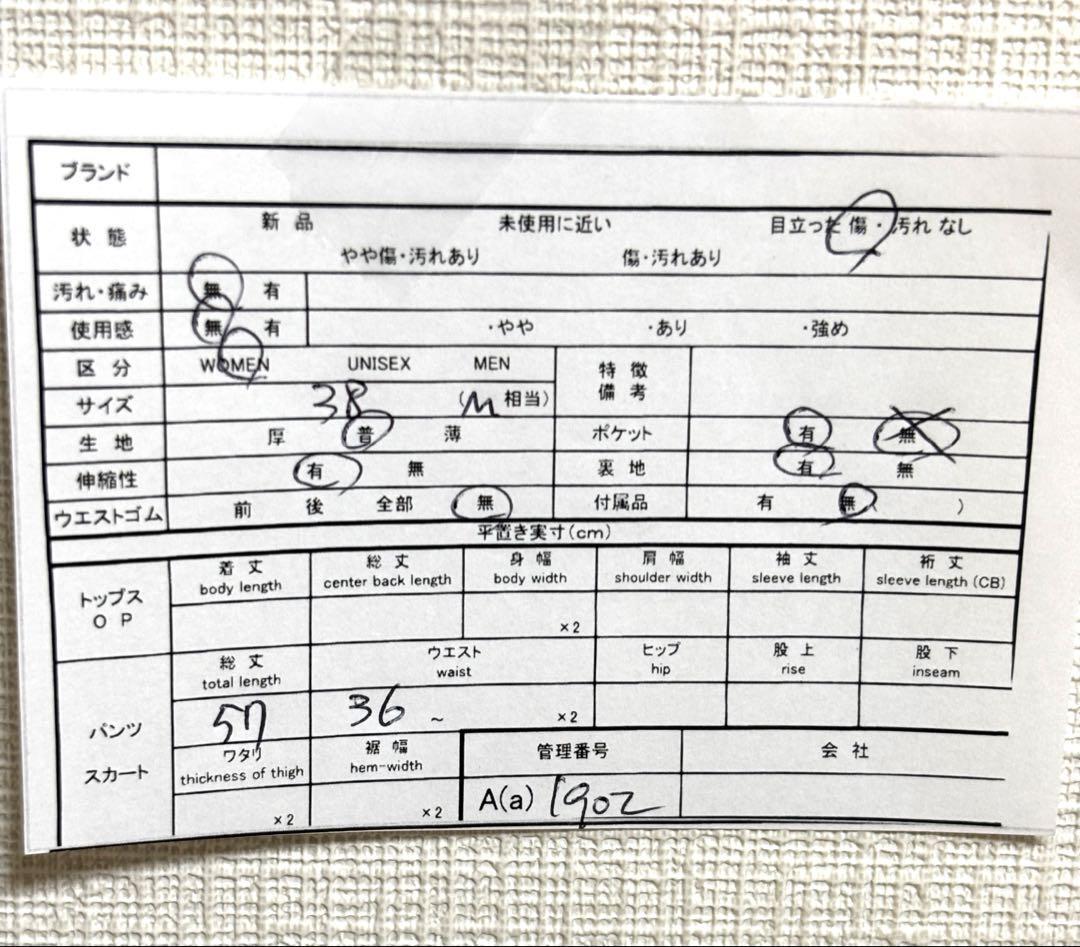 ブランド
状態 新品 未使用に近い 目立った傷・汚れなし
やや傷・汚れあり 傷・汚れあり
汚れ・痛み 無 有
使用感 無 有 ・やや ・あり ・強め
区分 WOMEN UNISEX MEN 特徴
備考
サイズ 38 (M相当)
生地 厚 普 薄 ポケット 有 無
伸縮性 有 無 裏地 有 無
ウエストゴム 前 後 全部 無 付属品 有 無( )
平置き実寸(cm)
トップス
OP
着丈 総丈 身幅 肩幅 袖丈 裄丈
body length center back length body width shoulder width sleeve length sleeve length (CB)
×2
パンツ
スカート
総丈 ウエスト ヒップ 股上 股下
total length waist hip rise inseam
57 36 ~ ×2
ワタリ 裾幅 管理番号 会社
thickness of thigh hem-width
×2 ×2 A(a) 1902